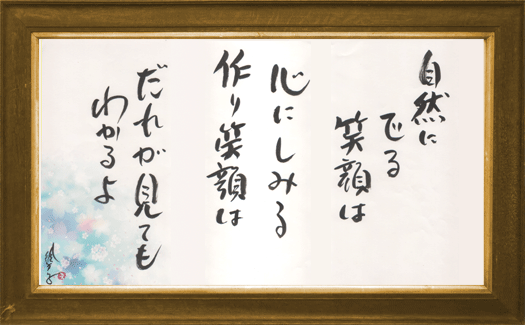 自然に
でる
笑顔は
心にしみる
作り笑顔は
だれが見ても
わかるよ